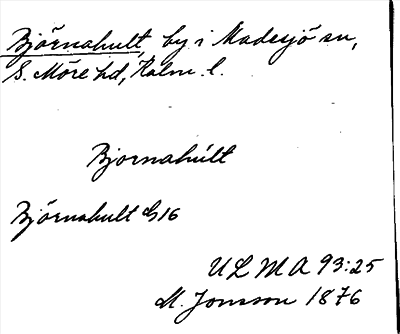 Björnahult, by i Madesjö sn,
S. Möre hd, Kalm. l.
Bjornahult
Björnahult G16
ULMA 93:25
M. Jonsson 1876